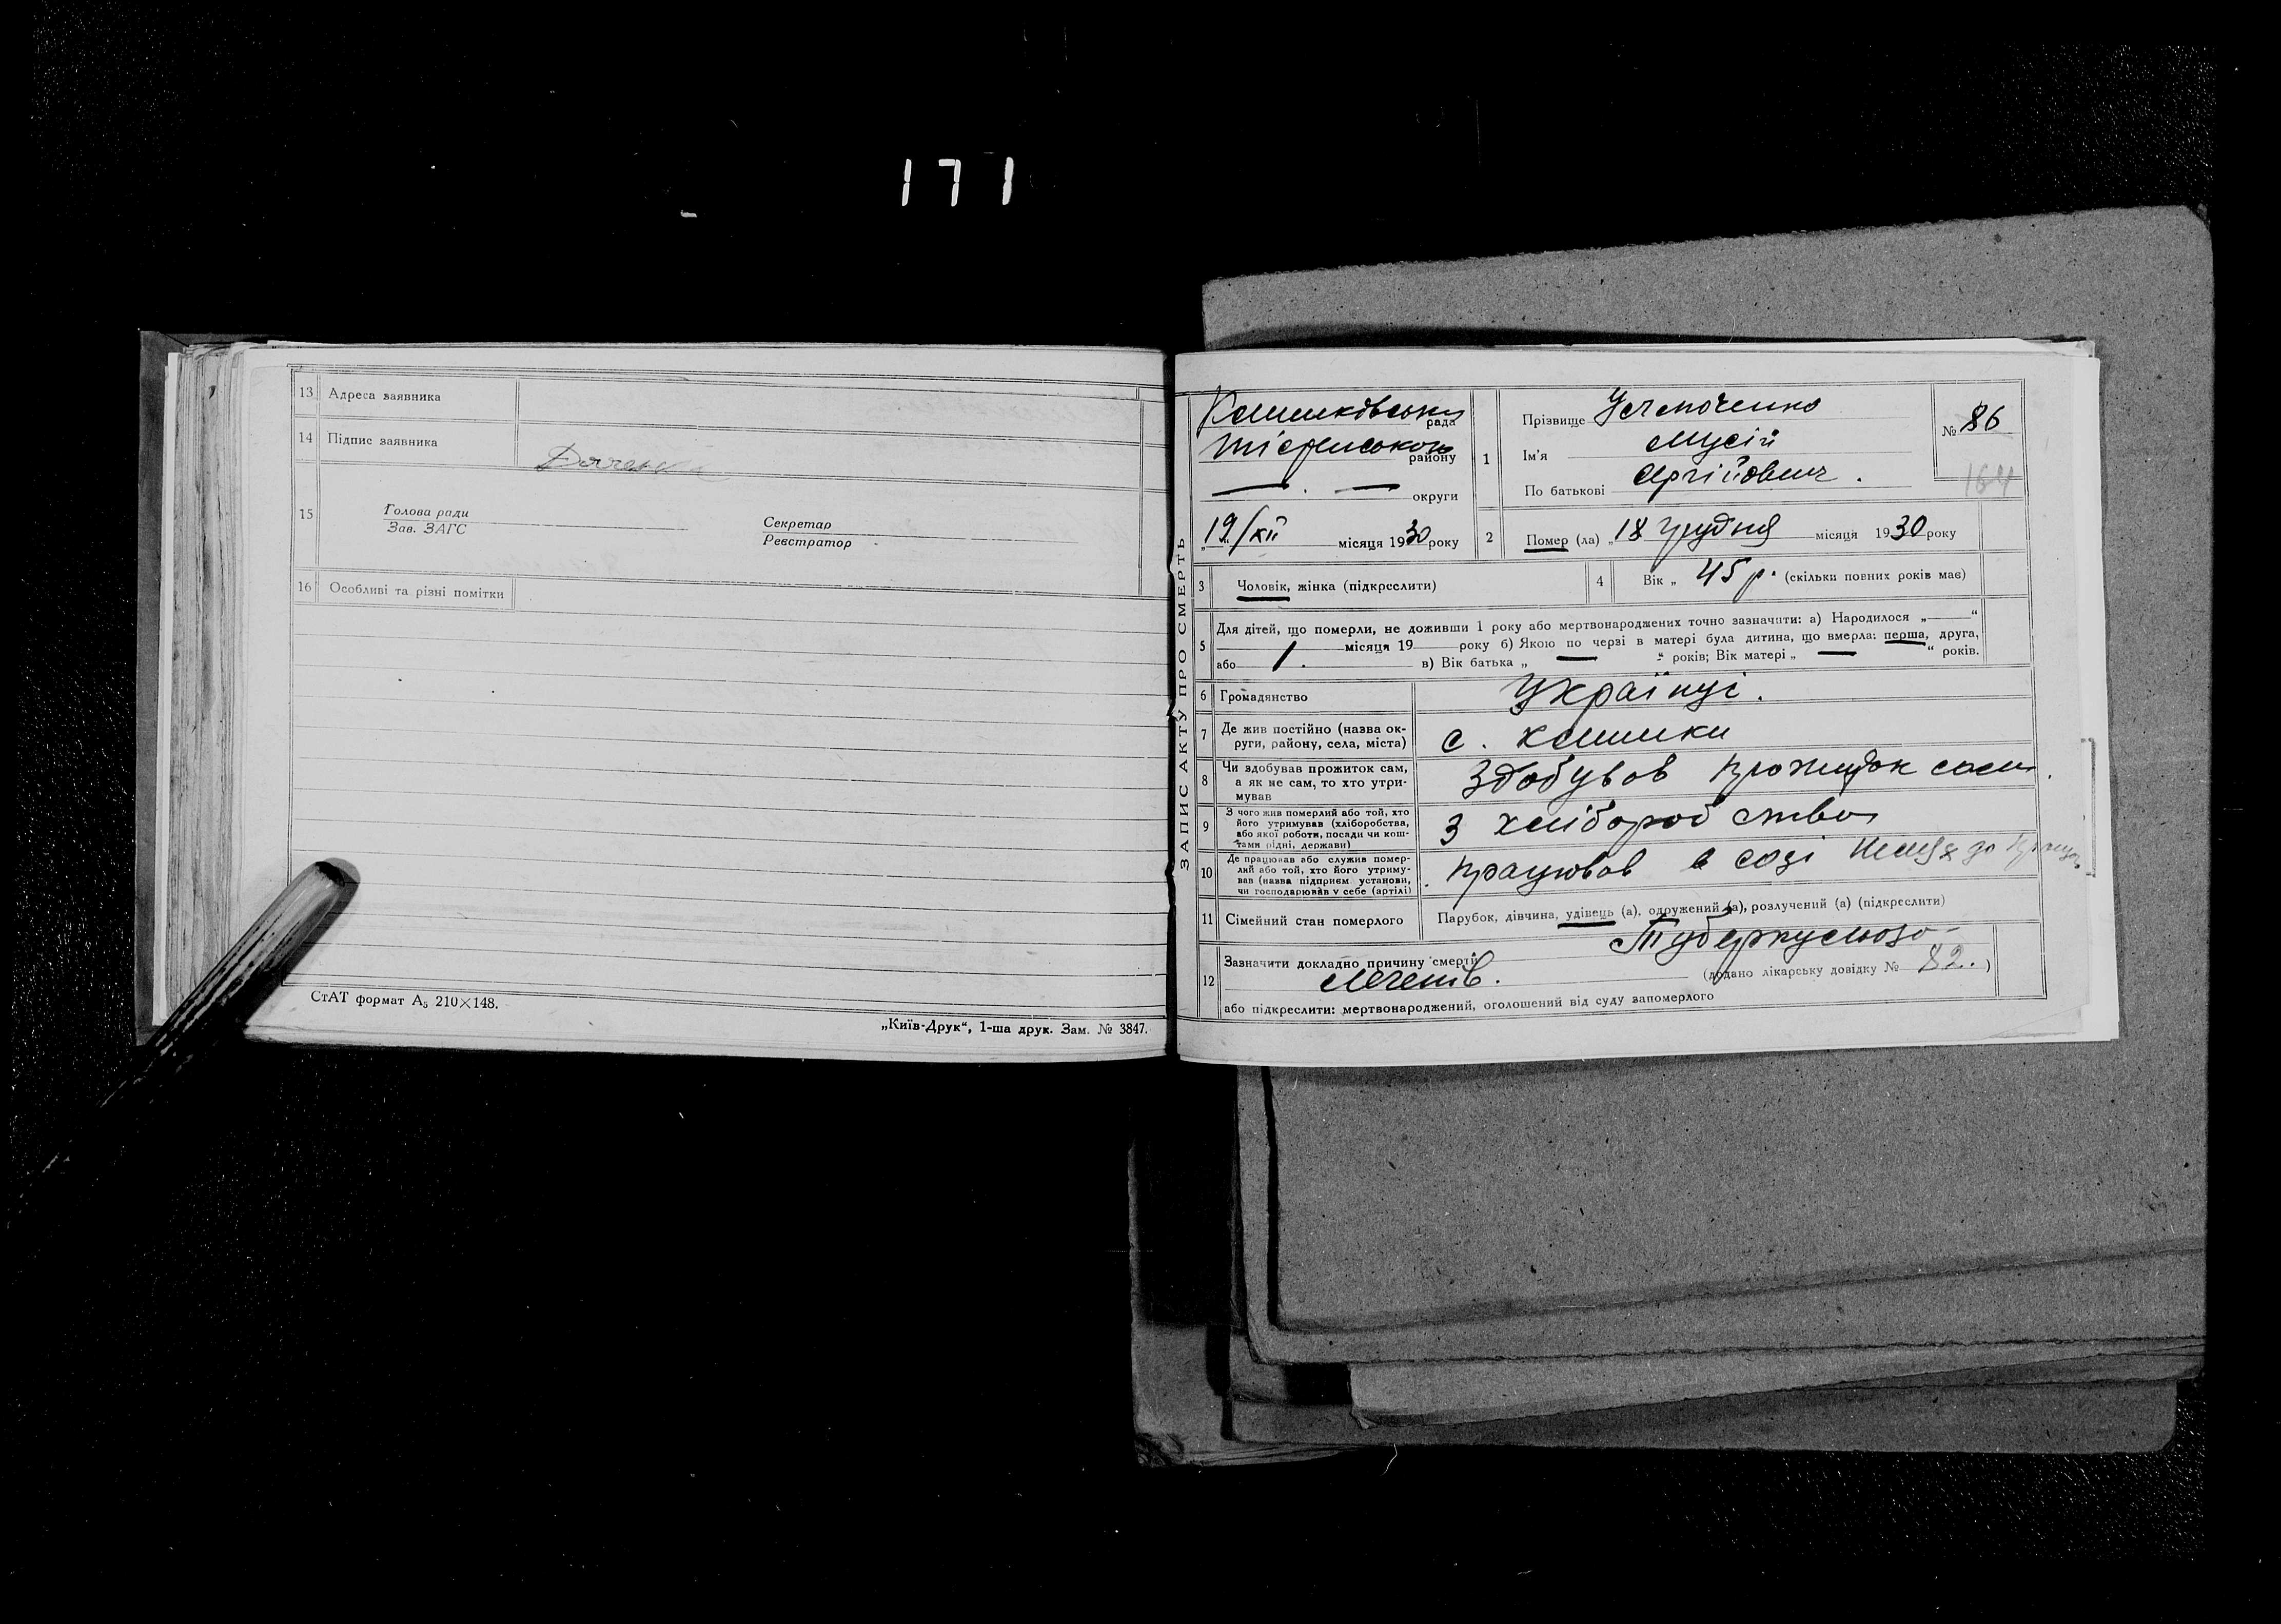 171
13 Адреса заявника
14 Підпис заявника
15 Голова ради
Зав. ЗАГС
Секретар
Реєстратор
16 Особливі та різні помітки
СтАТ формат А₅ 210×148.
„Київ-Друк“, 1-ша друк. Зам. № 3847.
ЗАПИС АКТУ ПРО СМЕРТЬ
рада
району
— . — округи
„19“/XII місяця 1930 року
1 Прізвище
Ім'я Мусій
По батькові
№ 86
164
2 Помер (ла) „18 грудня місяця 1930 року
3 Чоловік, жінка (підкреслити)
4 Вік „ 45 р. (скільки повних років має)
5 Для дітей, що померли, не доживши 1 року або мертвонароджених точно зазначити: а) Народилося „——“
місяця 19 року б) Якою по черзі в матері була дитина, що вмерла: перша, друга,
або 1. в) Вік батька „ — “ років; Вік матері „ — “ років.
6 Громадянство Українці.
7 Де жив постійно (назва округи, району, села, міста) с.
8 Чи здобував прожиток сам, а як не сам, то хто утримував Здобував прожидок сам.
9 З чого жив померлий або той, хто його утримував (хліборобства, або якої роботи, посади чи коштами рідні, держави) З хліборобства
10 Де працював або служив помер-
лий або той, хто його утриму-
вав (назва підприєм. установи,
чи господарював у себе (артілі) працював в созі
11 Сімейний стан померлого Парубок, дівчина, удівець (а), одружений (а), розлучений (а) (підкреслити)
12 Зазначити докладно причину смерти Туберкульозо-
легенів. (додано лікарську довідку № 82.)
або підкреслити: мертвонароджений, оголошений від суду запомерлого